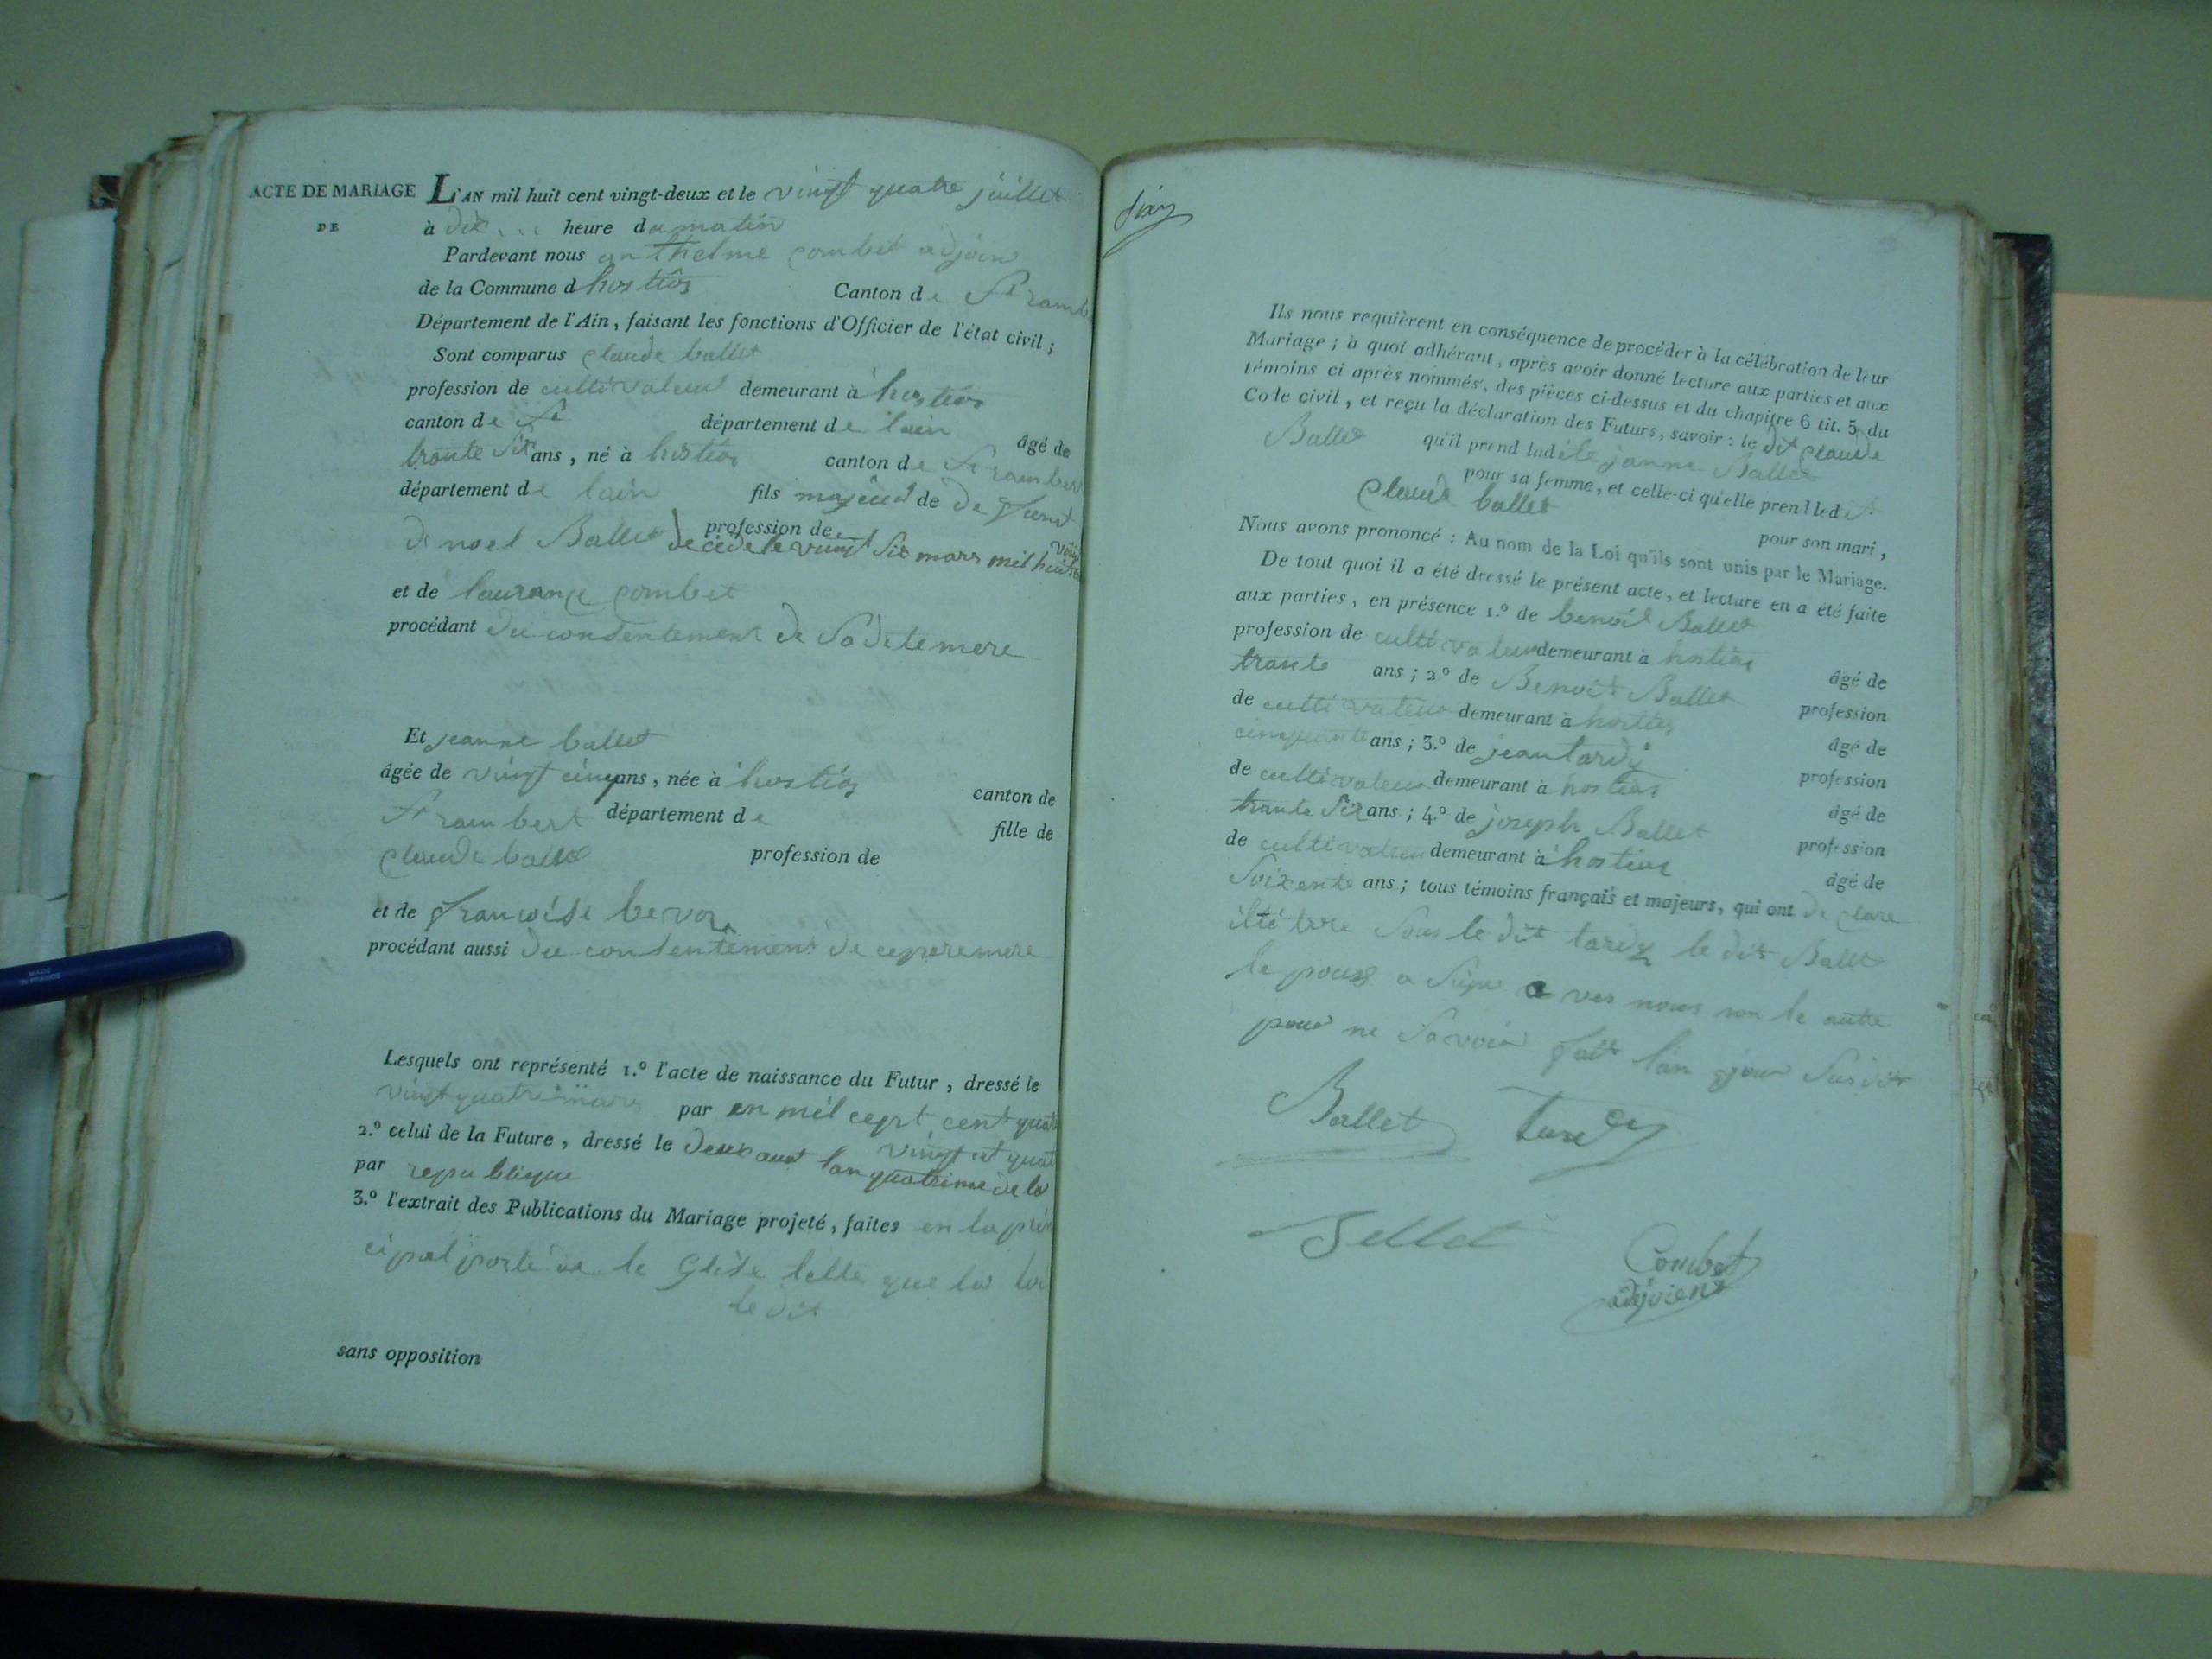 ACTE DE MARIAGE
DE
L'AN mil huit cent vingt-deux et le vingt quatre juillet
à dix heure du matin
Pardevant nous anthelme combet adjoin
de la Commune d hostias Canton de St ramb
Département de l'Ain, faisant les fonctions d'Officier de l'état civil ;
Sont comparus claude ballet
profession de cultivateur demeurant à hostias
canton de St département de lain âgé de
trante six ans, né à hostias canton de St rambert
département de lain fils majeur de defunt
de noel Ballet profession de
decede le vingt six mars mil huit
et de laurance combet
procédant du consentement de sadite mere
Et jeanne ballet
âgée de vingt cinq ans, née à hostias canton de
St rambert département de fille de
claude ballet profession de
et de francoise
procédant aussi du consentement de ce pere mere
Lesquels ont représenté 1.º l'acte de naissance du Futur, dressé le
vingt quatre mars par en mil cept cent quatre
vingt et quat
2.º celui de la Future, dressé le deux aout lan quatrime de la
par republique
3.º l'extrait des Publications du Mariage projeté, faites en la prin
cipal porte de le Glise telle que la loi
le dit
sans opposition
Ils nous requièrent en conséquence de procéder à la célébration de leur
Mariage ; à quoi adhérant, après avoir donné lecture aux parties et aux
témoins ci après nommés, des pièces ci-dessus et du chapitre 6 tit. 5 du
Code civil, et reçu la déclaration des Futurs, savoir : le dit claude
Ballet qu'il prend ladite janne Ballet
pour sa femme, et celle-ci qu'elle prend ledit
claude ballet pour son mari,
Nous avons prononcé : Au nom de la Loi qu'ils sont unis par le Mariage.
De tout quoi il a été dressé le présent acte, et lecture en a été faite
aux parties, en présence 1.º de benoit Ballet
profession de cultivateur demeurant à hostias âgé de
trante ans ; 2º de Benoit Ballet profession
de cultivateur demeurant à hostias âgé de
cinquante ans ; 3.º de jean tardy profession
de cultivateur demeurant à hostias âgé de
trante six ans ; 4.º de joseph Ballet profession
de cultivateur demeurant à hostias âgé de
soixente ans ; tous témoins français et majeurs, qui ont declare
sous le dit tardy le dit Ballet
le poux a signe a vec nous non le autre
pour ne savoir fait lan jour susdit
Ballet Tardy
Ballet
Combet
adjoient